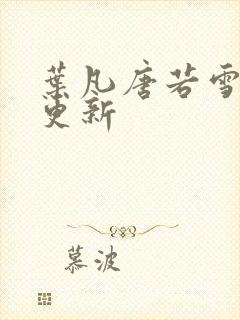 葉凡唐若雪
更新
慕波